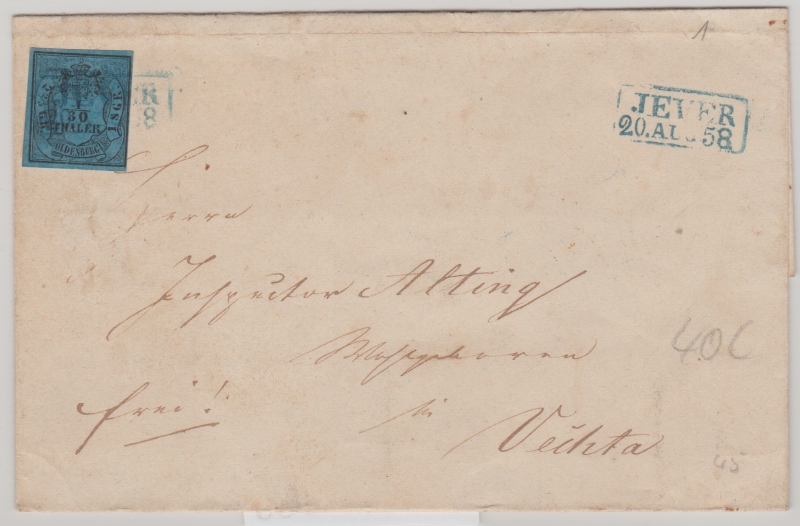 1
JEVER
20.AUG 58
ER
8
1
30
THALER
OLDENBURG
Herrn
Inspector Alting
Wohlgeboren
frei!
in
Vechta
40C
45